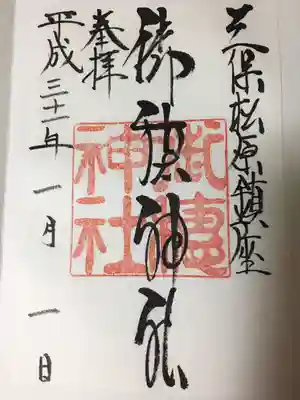 三保松原鎮座
御穂神社
御穂神社
奉拝
平成三十一年一月一日